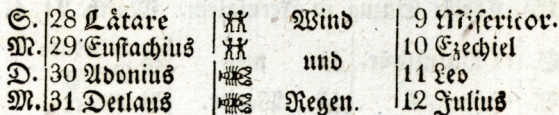 S. 28 Lätare Wind 9 Misericor.
M. 29 Eustachius 10 Ezechiel
und
D. 30 Adonius 11 Leo
M. 31 Detlaus Regen. 12 Julius